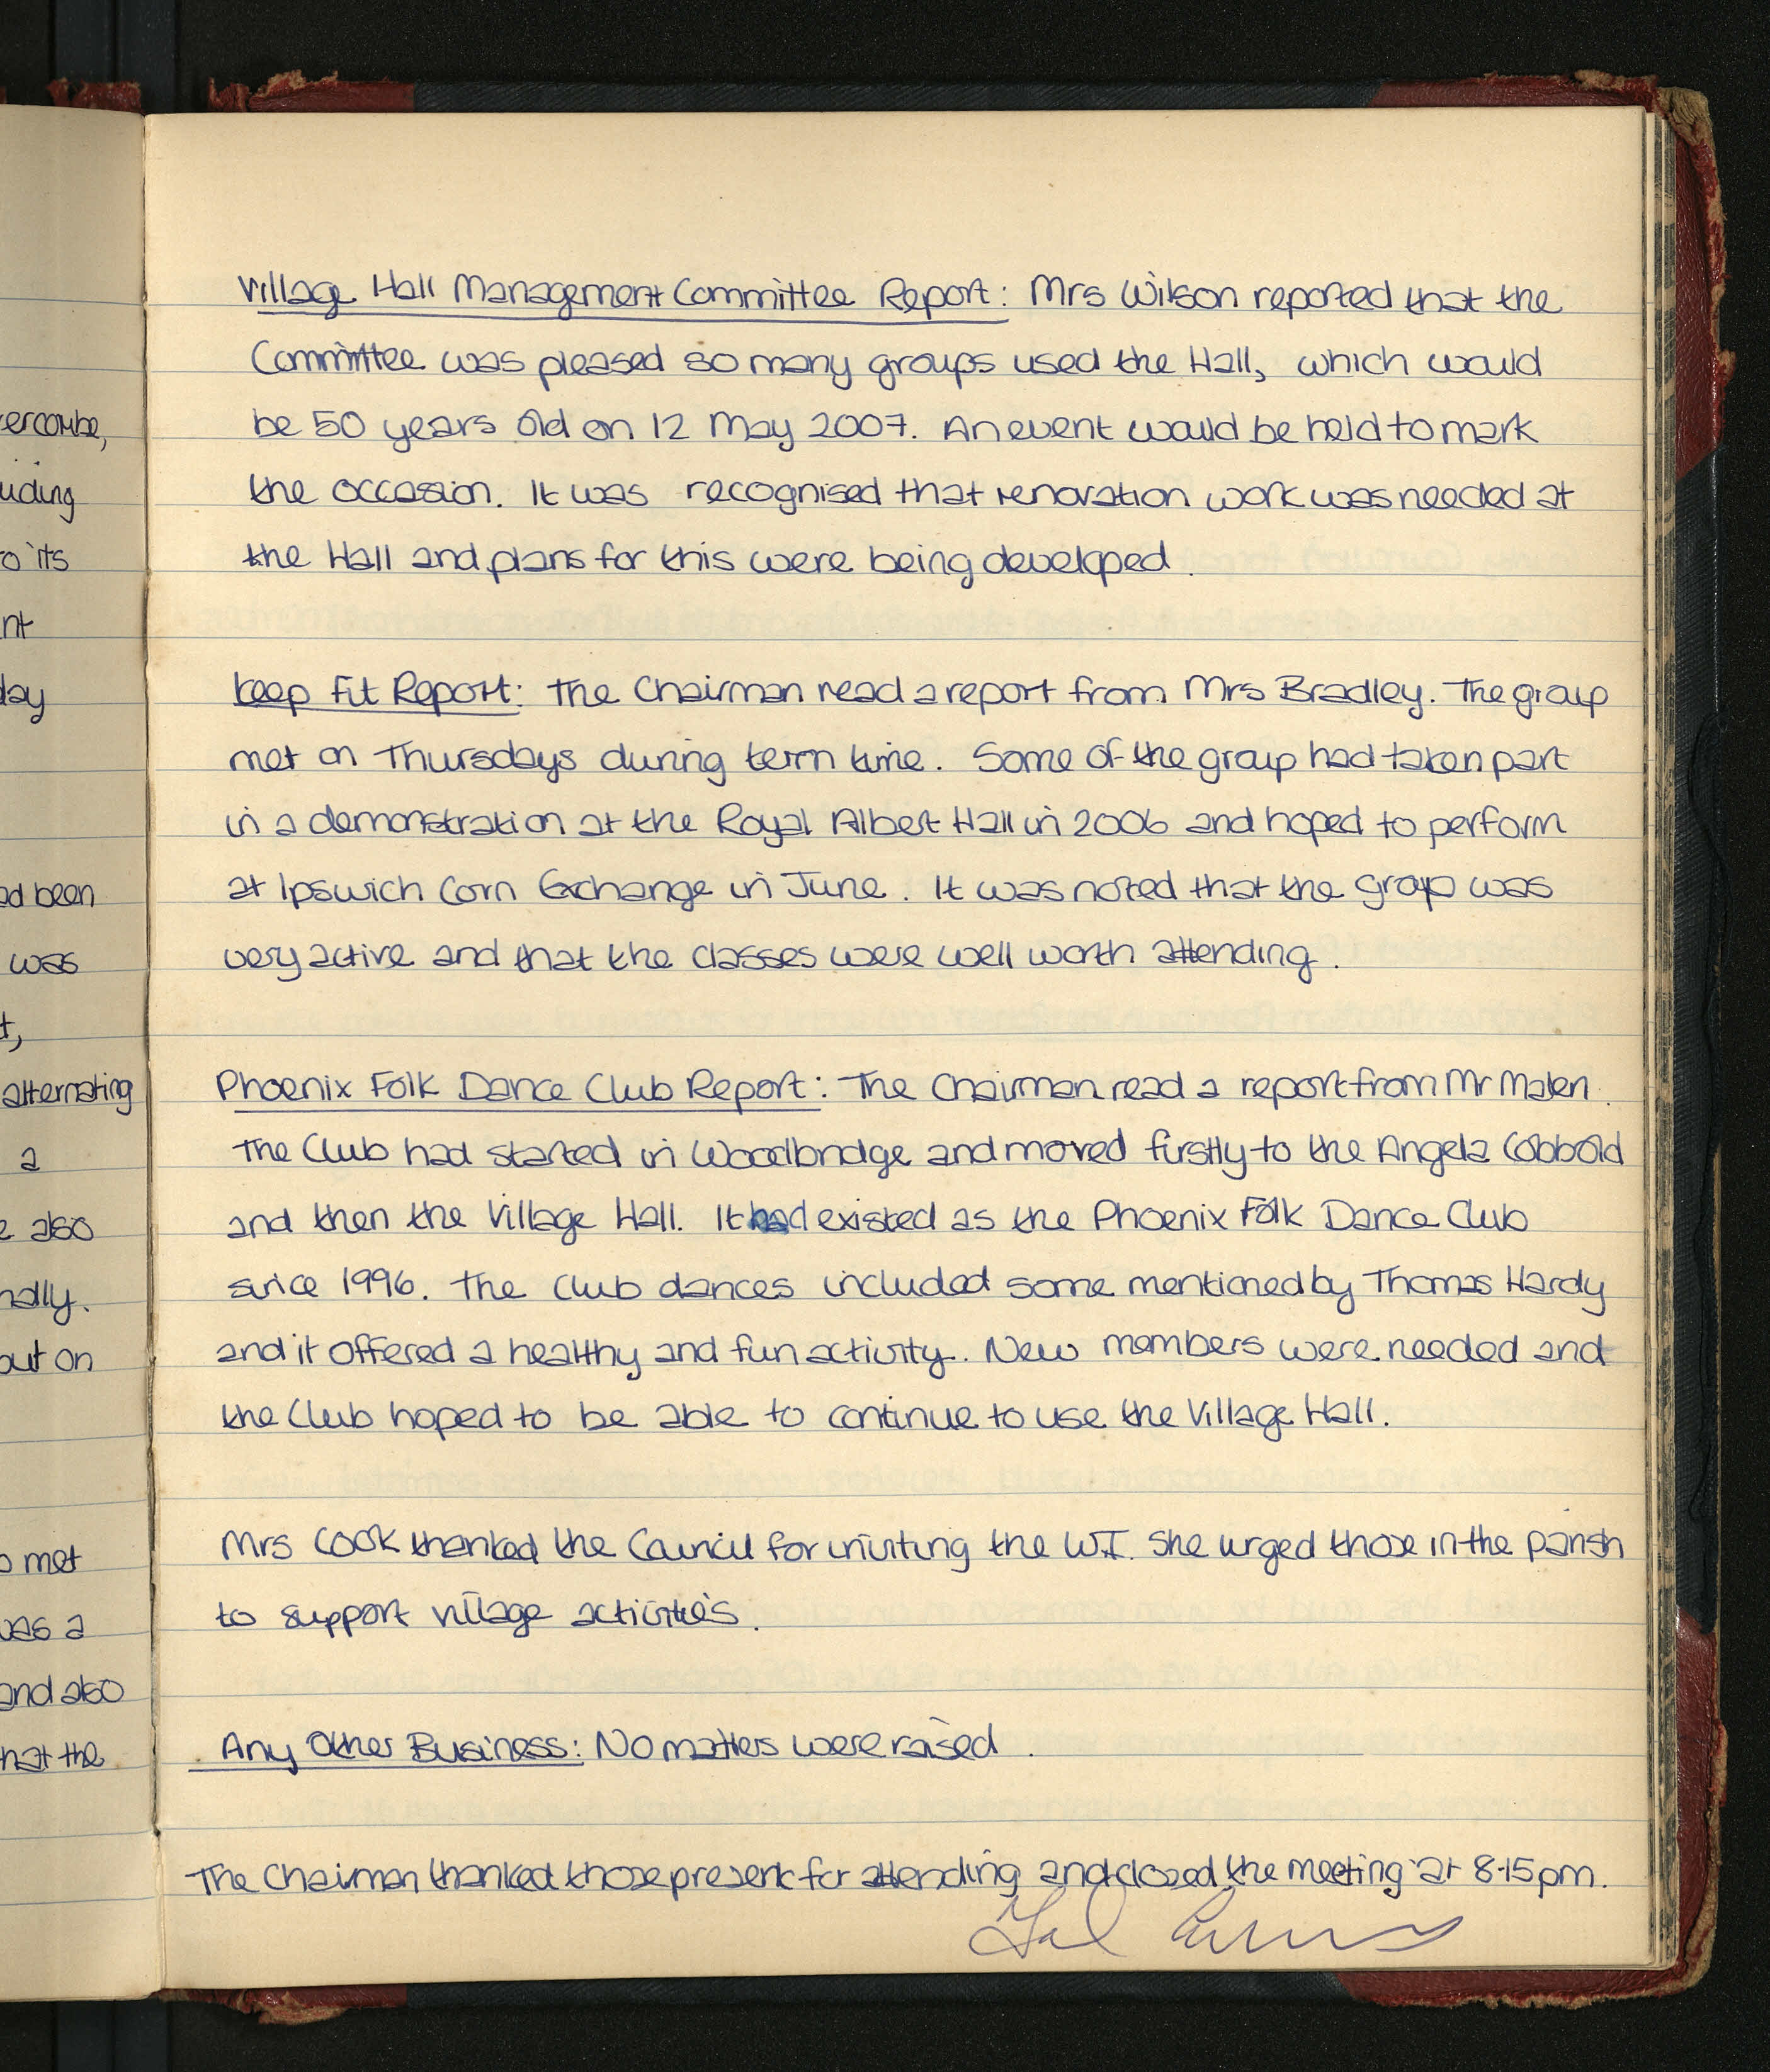 ercombe,
uding
o its
nt
day
ad been
was
t,
alternating
a
e also
nally.
out on
o met
was a
and also
hat the
Village Hall Management Committee Report: Mrs Wilson reported that the
Committee was pleased so many groups used the Hall, which would
be 50 years old on 12 May 2007. An event would be held to mark
the occasion. It was recognised that renovation work was needed at
the Hall and plans for this were being developed.
Keep Fit Report: The Chairman read a report from Mrs Bradley. The group
met on Thursdays during term time. Some of the group had taken part
in a demonstration at the Royal Albert Hall in 2006 and hoped to perform
at Ipswich Corn Exchange in June. It was noted that the group was
very active and that the classes were well worth attending.
Phoenix Folk Dance Club Report: The Chairman read a report from Mr Malen.
The Club had started in Woodbridge and moved firstly to the Angela Cobbold
and then the Village Hall. It had existed as the Phoenix Folk Dance Club
since 1996. The Club dances included some mentioned by Thomas Hardy
and it offered a healthy and fun activity. New members were needed and
the Club hoped to be able to continue to use the Village Hall.
Mrs Cook thanked the Council for inviting the W.I. She urged those in the Parish
to support village activities.
Any Other Business: No matters were raised.
The Chairman thanked those present for attending and closed the meeting at 8.15pm.